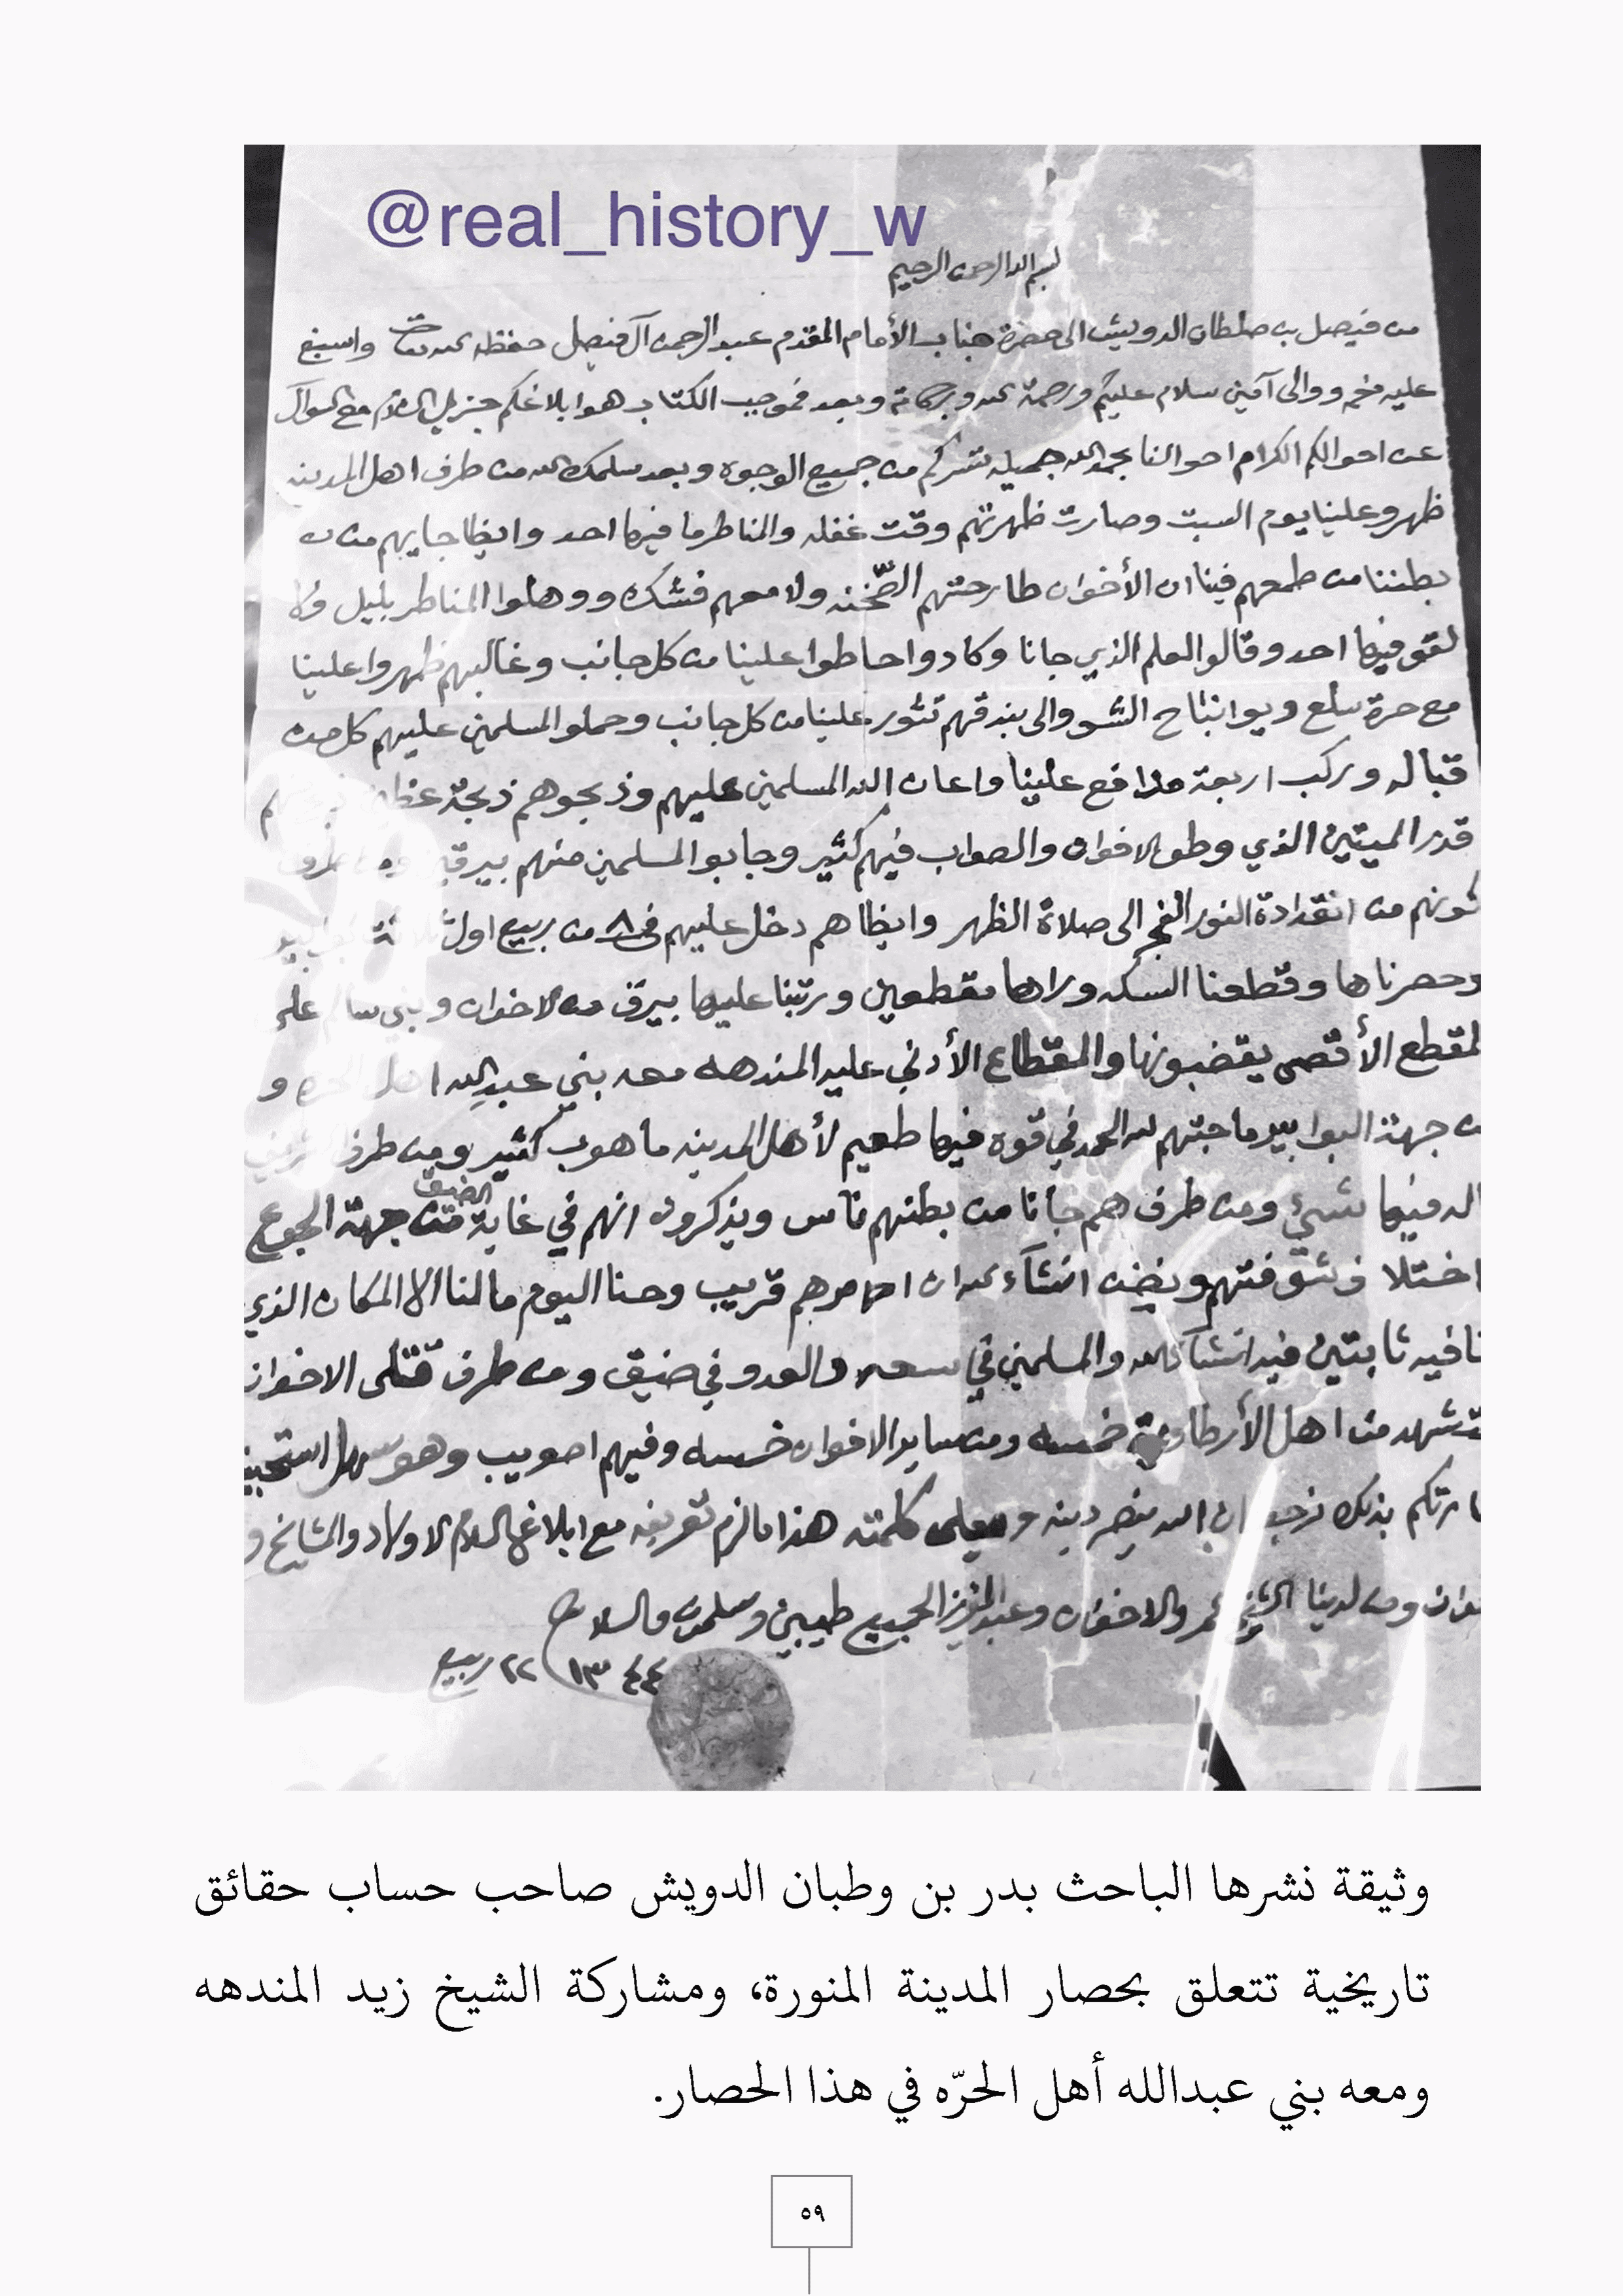 @real_history_w
بسم الله الرحمن الرحيم
من فيصل بن صلطان الدويش الى حضرة جناب الأمام المقدم عبد الرحمن آل فيصل حفظه الله تعالى واسبغ
عليه نعمه ووالى آمين سلام عليكم ورحمة الله وبركاته وبعد فموجب الكتاب هوا بلاغكم جزيل السلام مع السوآل
عن احوالكم الكرام احوالنا بحمد الله جميله تسركم من جميع الوجوه وبعد سلمك الله من طرف اهل المدينه
ظهرو علينا يوم السبت وصارت ظهرتهم وقت غفله والمناطر ما فيها احد وايظا جايهم من
بطننا من طمعهم فينا ان الأخوان طارحتهم الصّخنه ولا معهم فشك ووهلوا المناطر بليل ولا
لقو فيها احد وقالو العلم الذي جانا وكادوا حاطوا علينا من كل جانب وغالبهم ظهروا علينا
مع حرة سلع والى بندقهم تثور علينا من كل جانب وحملو المسلمين عليهم كل من
قباله وركب اربعة مدافع علينا واعان الله المسلمين عليهم وذبحوهم ذبحة
قدر الميتين الذي وطو الاخوان والصواب فيهم كثير وجابو المسلمين منهم
كونهم من انقدادة النور الفجر الى صلاة الظهر وايظاهم دخل عليهم في ٨ من ربيع اول
وحصرناها وقطعنا السكه وراها مقطعين ورتبنا عليها بيرق من الاخوان وبني سالم على
لمقطع الأقصى يقضبونها والمقطاع الأدنى عليه المندهه معه بني عبدالله اهل الحره و
من جهة البوابير ما جتهم لله الحمد في قوه فيها طعيم لأهل المدينه ما هوب كثير ومن طرف
فيها شيئ ومن طرف هم جانا من بطنهم ناس ويذكرون انهم في غاية الضيق من جهة الجوع
اختلاف شوفتهم ونضن انشآء الله ان امرهم قريب وحنا اليوم مالنا الا المكان الذي
فيه ثابتين فيه انشآ الله والمسلمين في سعه والعدو في ضيق ومن طرف قتلى الاخوان
تشهد من اهل الأرطاوية خمسه ومن ساير الاخوان خمسه وفيهم اصويب وهو سهل
بذلك نرجو ان الله ينصر دينه ويعلي كلمته هذا مالزم تعريفه مع ابلاغ السلام الاولاد والمشايخ و
ومن لدينا الشيخ والاخوان وعبدالعزيز الجميع طيبين وسلمون والسلام
٢٢ ربيع ١٣٤٤
وثيقة نشرها الباحث بدر بن وطبان الدويش صاحب حساب حقائق
تاريخية تتعلق بحصار المدينة المنورة، ومشاركة الشيخ زيد المندهه
ومعه بني عبدالله أهل الحرّه في هذا الحصار.
٥٩